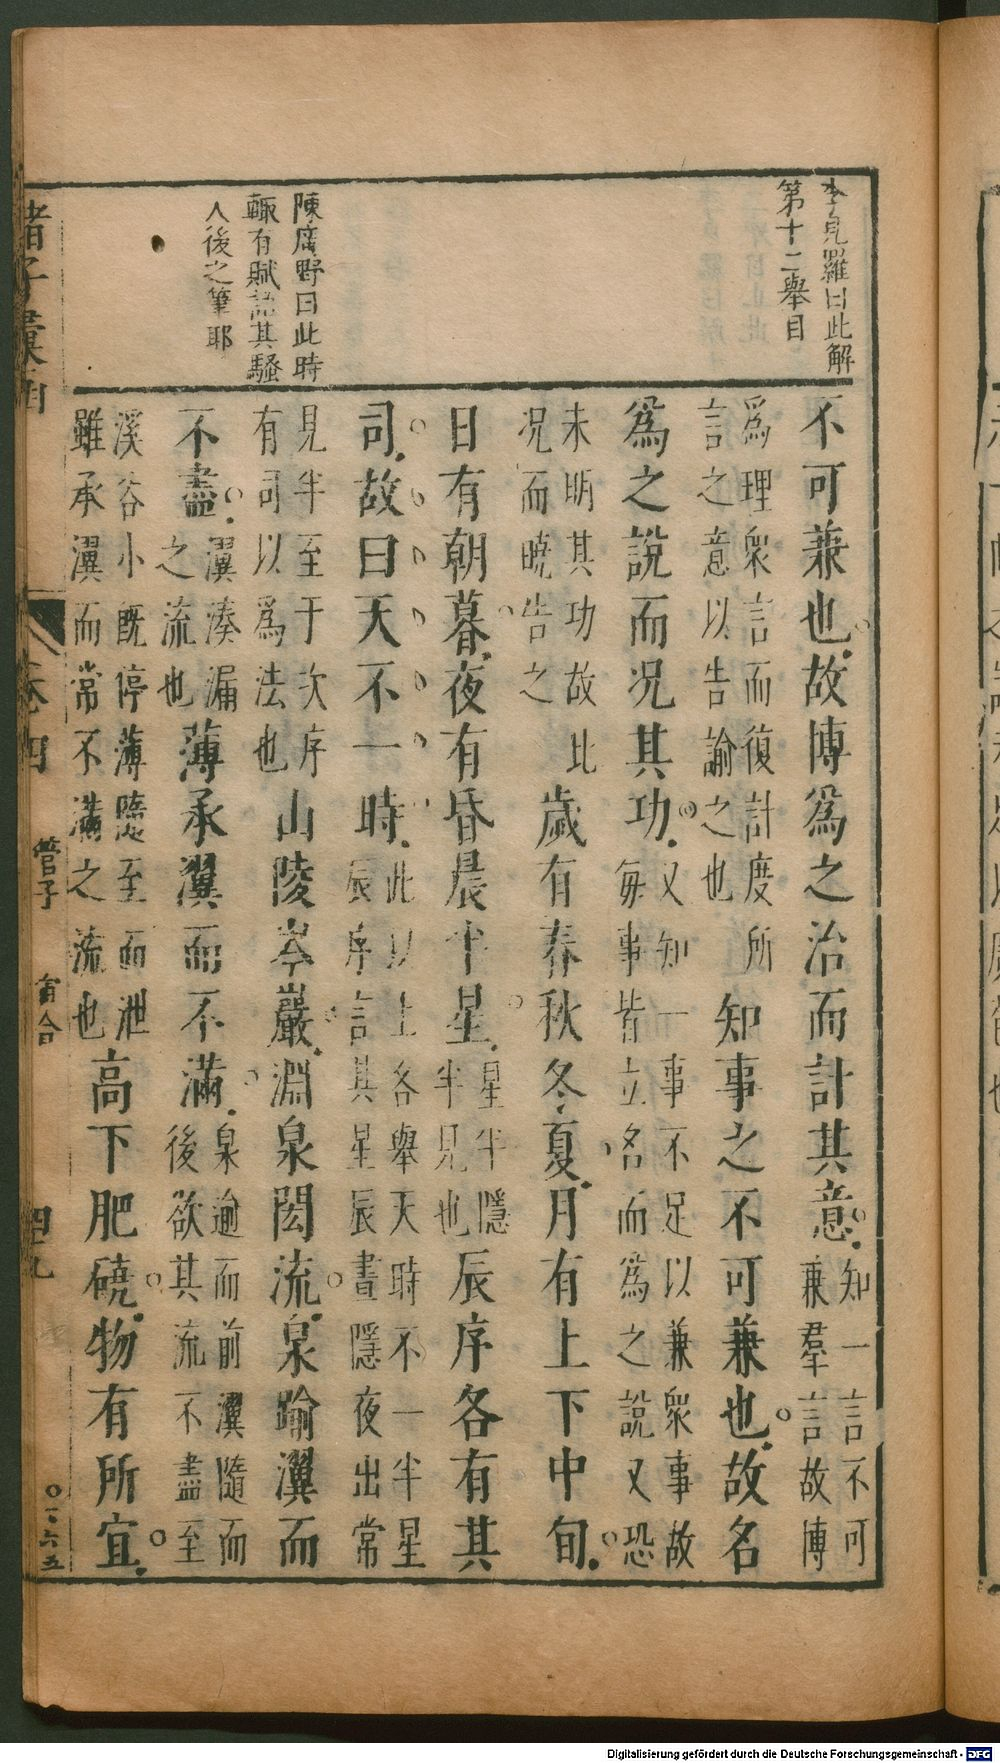 李見羅曰此解
第十二舉目
陳廣野曰此時
輙有賦語其騷
人後之筆耶
不可兼也故博爲之治而計其意知一言不可兼羣言故博
爲理衆言而復計度所言之意以告諭之也知事之不可兼也故名
爲之說而况其功又知一事不足以兼衆事故每事皆立名而爲之說又恐
未明其功故比况而曉告之歲有春秋冬夏月有上下中旬
日有朝暮夜有昏晨半星星半隱半見也辰序各有其
司故曰天不一時此以上各舉天時不一半星辰序言其星辰晝隱夜出常
見半至于次序有司以爲法也山陵岑巖淵泉閎流泉踰瀷而
不盡瀷湊漏之流也薄承瀷而不滿泉逾而前瀷隨而後欲其流不盡至
溪谷小既停薄隨至而泄雖承瀷而常不滿之流也高下肥磽物有所宜
諸子彙函
卷四
管子
宙合
四九
〇二六五
Digitalisierung gefördert durch die Deutsche Forschungsgemeinschaft - DFG